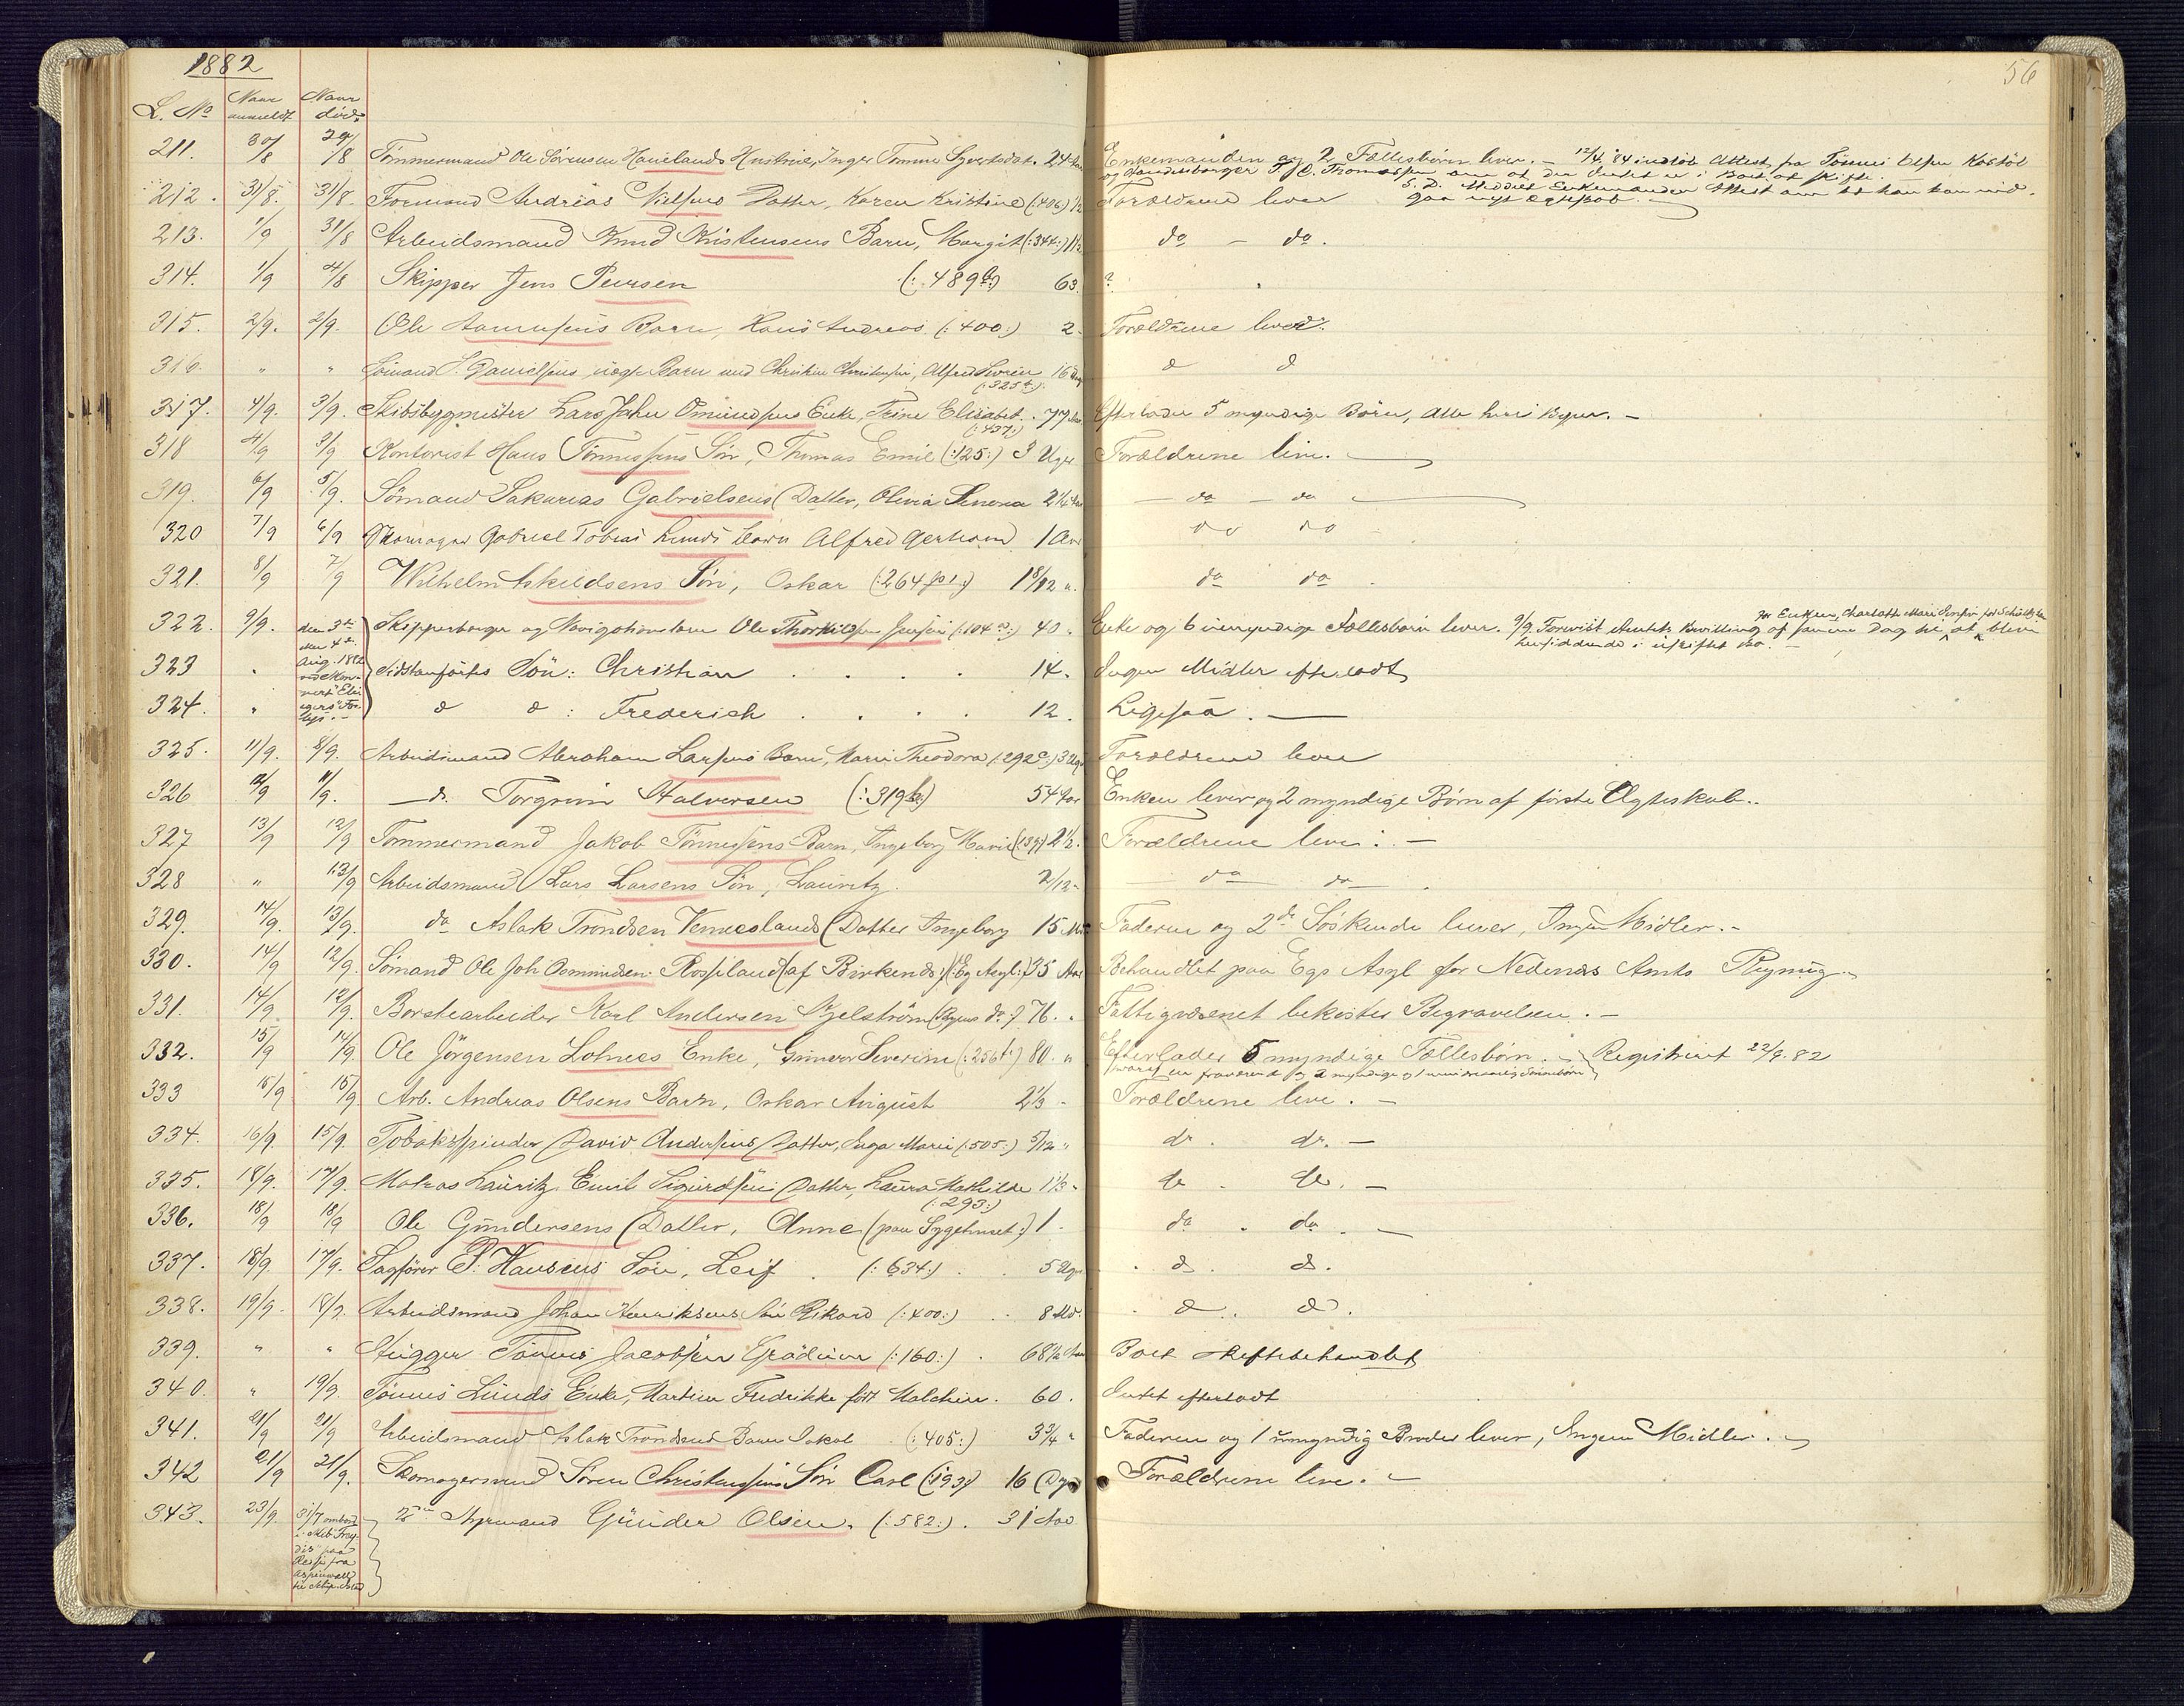 1882
56
L. No Naar anmeldt Naar död
211. 30/8 29/8 Tömmermand Ole Sörensen Hauelands Hustrue, Inger Tomine Syvertsdat. 24 Aar Enkemanden og 2 Fællesbörn lever. – 12/4 84 indlöb Attest fra Tönnes Olsen Kostöl
og Handelsborger T. C. Thomassen om at der Intet er i Boet at skifte.
S. D. meddelt Enkemanden Attest om at han kan ind-
gaa nyt Ægteskab. –
212. 31/8. 31/8. Formand Andreas Nielsens Datter, Karen Kristine (:406) 1/2 Forældrene lever
213. 1/9 31/8 Arbeidsmand Knud Kristensens Barn, Margit (:344:) 1 1/2 do – do.
314. 1/9 4/8 Skipper Jens Peersen (: 489 b:) 63. ?
315. 2/9. 2/9. Ole Aanensens Barn, Hans Andreas (:400:) 2. Forældrene lever.
316. " " Sömand S. Danielsens uægte Barn med Christine Christensen, Alfred Severin 16 Dag d d
(:325 b:)
317. 4/9. 3/9. Skibsbygmester Lars Jahn Omundsens Enke, Trine Elisabet. 77 Aar Efterlader 5 myndige Börn, alle her i Byen. –
(:437:)
318 4/9 3/9 Kontorist Hans Tönnesens Sön, Thomas Emil (:125:) 3 Uger Forældrene live. –
319. 6/9 5/9. Sömand Sakarias Gabrielsens Datter, Olivia Severine 2 1/4 Aar – do – do –
320 7/9 6/9 Skomager Gabriel Tobias Lunds Barn Alfred Gerhard 1 Aar do do
321. 8/9 7/9 Wilhelm Askildsens Sön, Oskar (:264 1:) 1 8/12 ". do do.
322. 9/9. den 3de eller 4de Aug. 1882 ved Skonnert Eli- egers Forlis. – Skipperborger og Navigationslærer Ole Thorkildsen Jensen (:104 a:) 40. Enke og 6 umyndige Fællesbörn lever. 9/9. Forevist Amtets Bevilling af samme Dag til, at blive
for Enken, Charlotte Marie Jensen föd Schöltze
hensiddende i uskiftet Bo. –
323 " Sidstanförtes Sön: Christian . . . . 14. Ingen Midler efterladt
324. " d d : Frederich . . . . 12. Ligesaa. –
325. 11/9. 8/9. Arbeidsmand Abraham Larsens Barn, Marie Theodora (:292 c:) 3 Uger Forældrene lever
326 12/9 11/9. – d. Torgrim Halvorsen (:319 b:) 54 Aar Enken lever og 2 myndige Börn af förste Ægteskab..
327 13/9 12/9 Tömmermand Jakob Tönnesens Barn, Ingeborg Marie (:89) 2 1/2. Forældrene lever. –
328 " 13/9 Arbeidsmand Lars Larsens Sön, Lauritz. 2/12. – do – do – .
329. 14/9. 13/9. do Aslak Trondsen Venneslands Datter Ingeborg 15 Md Faderen og 2de Söskende lever, Ingen Midler. –
330. 14/9 12/9. Sömand Ole Joh Osmundsen Rosseland (af Birkends:) (:Eg Asyl:) 35 Aar Behandlet paa Egs Asyl for Nedenæs Amts Regning –
331. 14/9 12/9. Börstearbeider Karl Andersen Kjelström (Byens do:) 76. " Fattigvæsenet bekoster Begravelsen. –
332. 15/9 14/9. Ole Jörgensen Lohnes Enke, Gunvor Severine (:256 b:) 80. " Efterlader 5 myndige Fællesbörn. – Registreret 22/9. 82
hvoraf en fraværende og 2 myndige og 1 mindreaarig Sönnebörn
333 15/9 15/9. Arb. Andreas Olsens Barn, Oskar August 2 1/3 – Forældrene live. –
334. 16/9. 15/9. Tobakspinder David Andersens Datter, Inga Marie (:505:) 5/12 " do. do. –
335. 18/9. 17/9. Matros Lauritz Emil Sigurdsens Datter, Laura Mathilde 1 1/3 " do . do. –
(:293:)
336. 18/9 18/9 Ole Gundersens Datter, Anne (paa Sygehuset:) 1. do . do . –
337. 18/9. 17/9. Sagförer P. Hansens Sön, Leif . (:634:) . . 5 Uger . d. d.
338. 19/9. 18/9. Arbeidsmand Johan Henriksens Sön Rikard (:400:) . . 8 Md. . d. d.
339. " " Hugger Tönnes Jacobsen Grödum (:160:) . 68 1/2 Aar Boet skiftebehandlet
340. " 19/9. Tönnes Lunds Enke, Martine Fredrikke föd Malchin. 60. Intet efterladt
341. 21/9 21/9 Arbeidsmand Aslak Trondsens Barn Jakob . (:405:) 3 3/4 " Faderen og 1 umyndig Broder lever, Ingen Midler. –
342 21/9 21/9. Skomagersvend Sören Christensens Sön Carl (:193) 16 Dage Forældrene live. –
343. 23/9. 31/7 ombord i Skib Frey- dis paa Reise fra Aspinwall til Ship Island Styrmand Gunder Olsen. (:582:) . 31 Aar